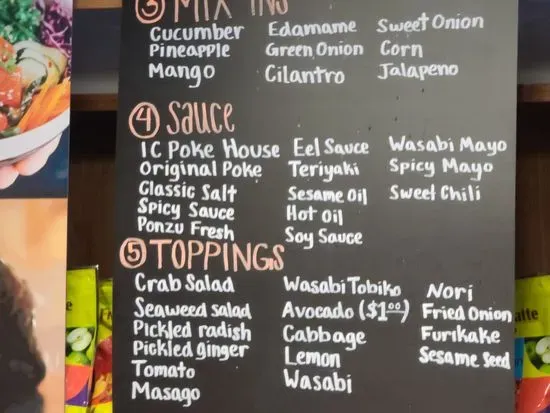 ③ MIX INS
Cucumber
Pineapple
Mango
Edamame
Green Onion
Cilantro
Sweet Onion
Corn
Jalapeno
④ Sauce
IC Poke House
Original Poke
Classic Salt
Spicy Sauce
Ponzu Fresh
Eel Sauce
Teriyaki
Sesame Oil
Hot Oil
Soy Sauce
Wasabi Mayo
Spicy Mayo
Sweet Chili
⑤ TOPPINGS
Crab Salad
Seaweed Salad
Pickled radish
Pickled ginger
Tomato
Masago
Wasabi Tobiko
Avocado ($1.00)
Cabbage
Lemon
Wasabi
Nori
Fried Onion
Furikake
Sesame Seed